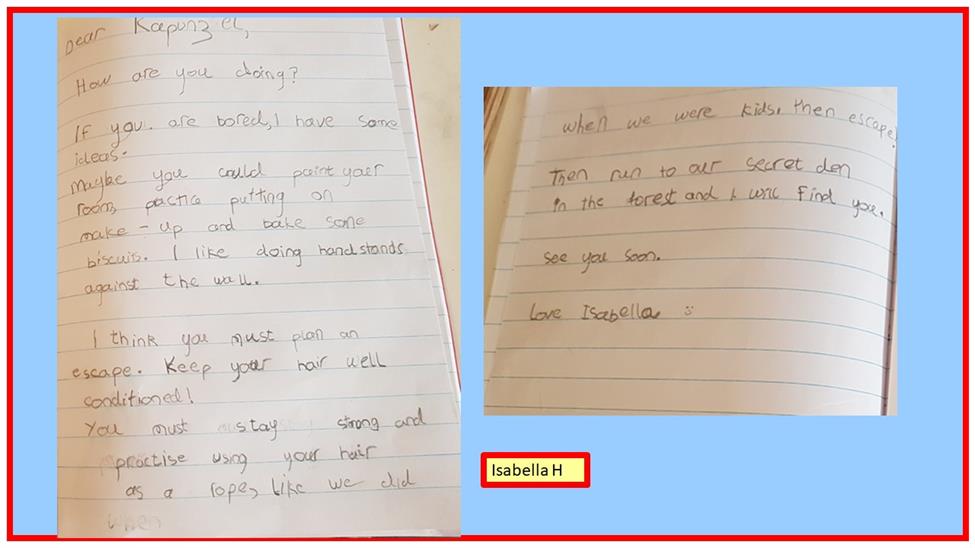 Dear Rapunzel,
How are you doing?
If you. are bored, I have some
ideas.
Maybe you could paint your
room, practice putting on
make-up and bake some
biscuits. I like doing handstands
against the wall.
I think you must plan an
escape. Keep your hair well
conditioned!
You must stay strong and
practise using your hair
as a rope, like we did
when
when we were kids, then escape!
Then run to our secret den
in the forest and I will find you.
see you soon.
Love Isabella :)
Isabella H